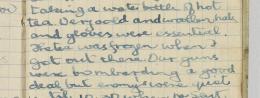 taking a water bottle of hot
tea. Very cold and woollen hats
and gloves were essential.
was frozen when I
got out there. Our guns
were bombarding a good
deal but enemy were quiet